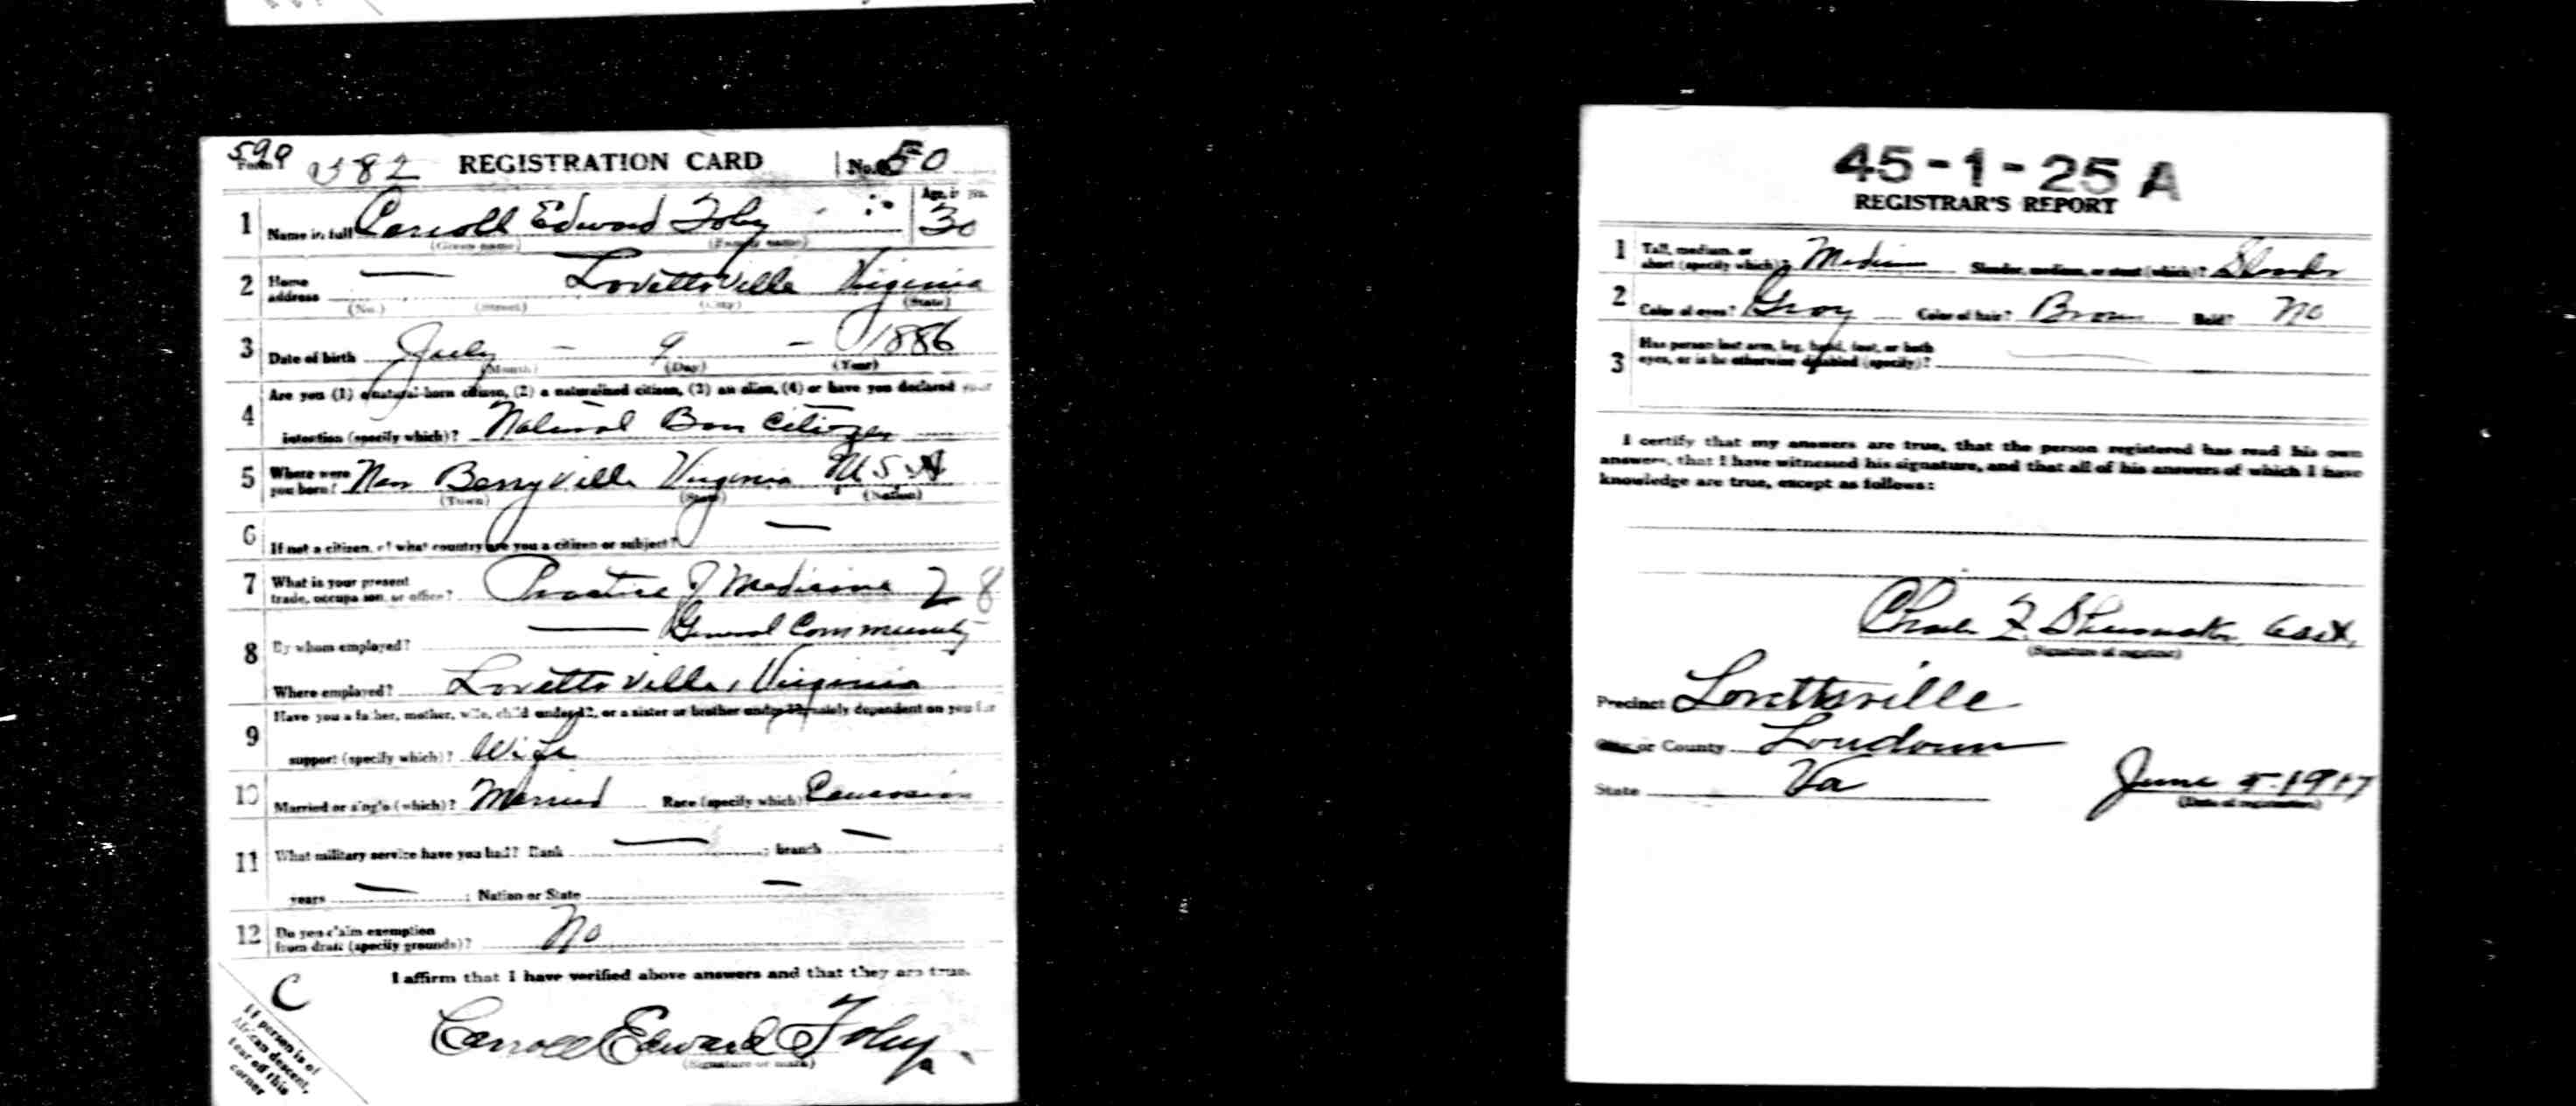 599
Form 1 382 REGISTRATION CARD No. 50
1 Name in full Carroll Edward Foley Age, in yrs. 30
(Given name) (Family name)
2 Home address — Lovettsville Virginia
(No.) (Street) (City) (State)
3 Date of birth July - 9 - 1886
(Month) (Day) (Year)
Are you (1) a natural-born citizen, (2) a naturalized citizen, (3) an alien, (4) or have you declared your
4 intention (specify which)? Natural Born Citizen
5 Where were you born? Near Berryville Virginia U S A
(Town) (State) (Nation)
6 If not a citizen, of what country are you a citizen or subject? —
7 What is your present trade, occupation, or office? Practice of Medicine 28
8 By whom employed? — General Community
Where employed? Lovettsville, Virginia
9 Have you a father, mother, wife, child under 12, or a sister or brother under 12, solely dependent on you for
support (specify which)? Wife
10 Married or single (which)? Married Race (specify which)? Caucasian
11 What military service have you had? Rank — ; branch —
years — ; Nation or State —
12 Do you claim exemption from draft (specify grounds)? No
I affirm that I have verified above answers and that they are true.
C
If person is of
African descent,
tear off this
corner
Carroll Edward Foley
(Signature or mark)
45-1-25 A
REGISTRAR'S REPORT
1 Tall, medium, or short (specify which)? Medium Slender, medium, or stout (which)? Slender
2 Color of eyes? Gray Color of hair? Brown Bald? No
3 Has person lost arm, leg, hand, foot, or both
eyes, or is he otherwise disabled (specify)? —
I certify that my answers are true, that the person registered has read his own
answers, that I have witnessed his signature, and that all of his answers of which I have
knowledge are true, except as follows:
F. Shumaker
(Signature of registrar)
Precinct Lovettsville
City or County Loudoun
State Va June 5-1917
(Date of registration)